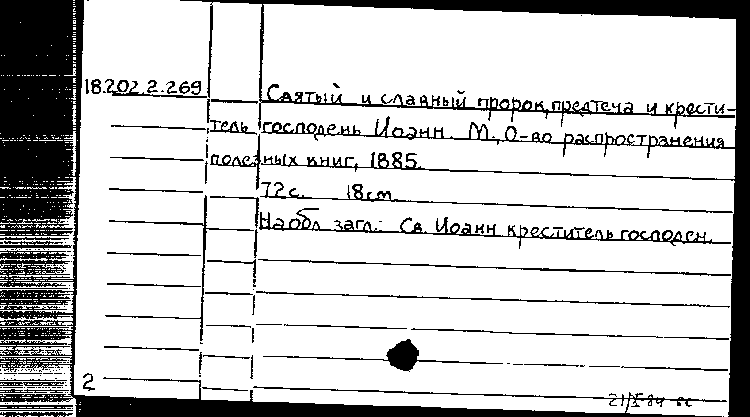 18.202.2.269
Святый и славный пророк, предтеча и крести-
тель господень Иоанн. М., О-во распространения
полезных книг, 1885.
72с. 18см.
На обл. загл.: Св. Иоанн креститель господен.
2